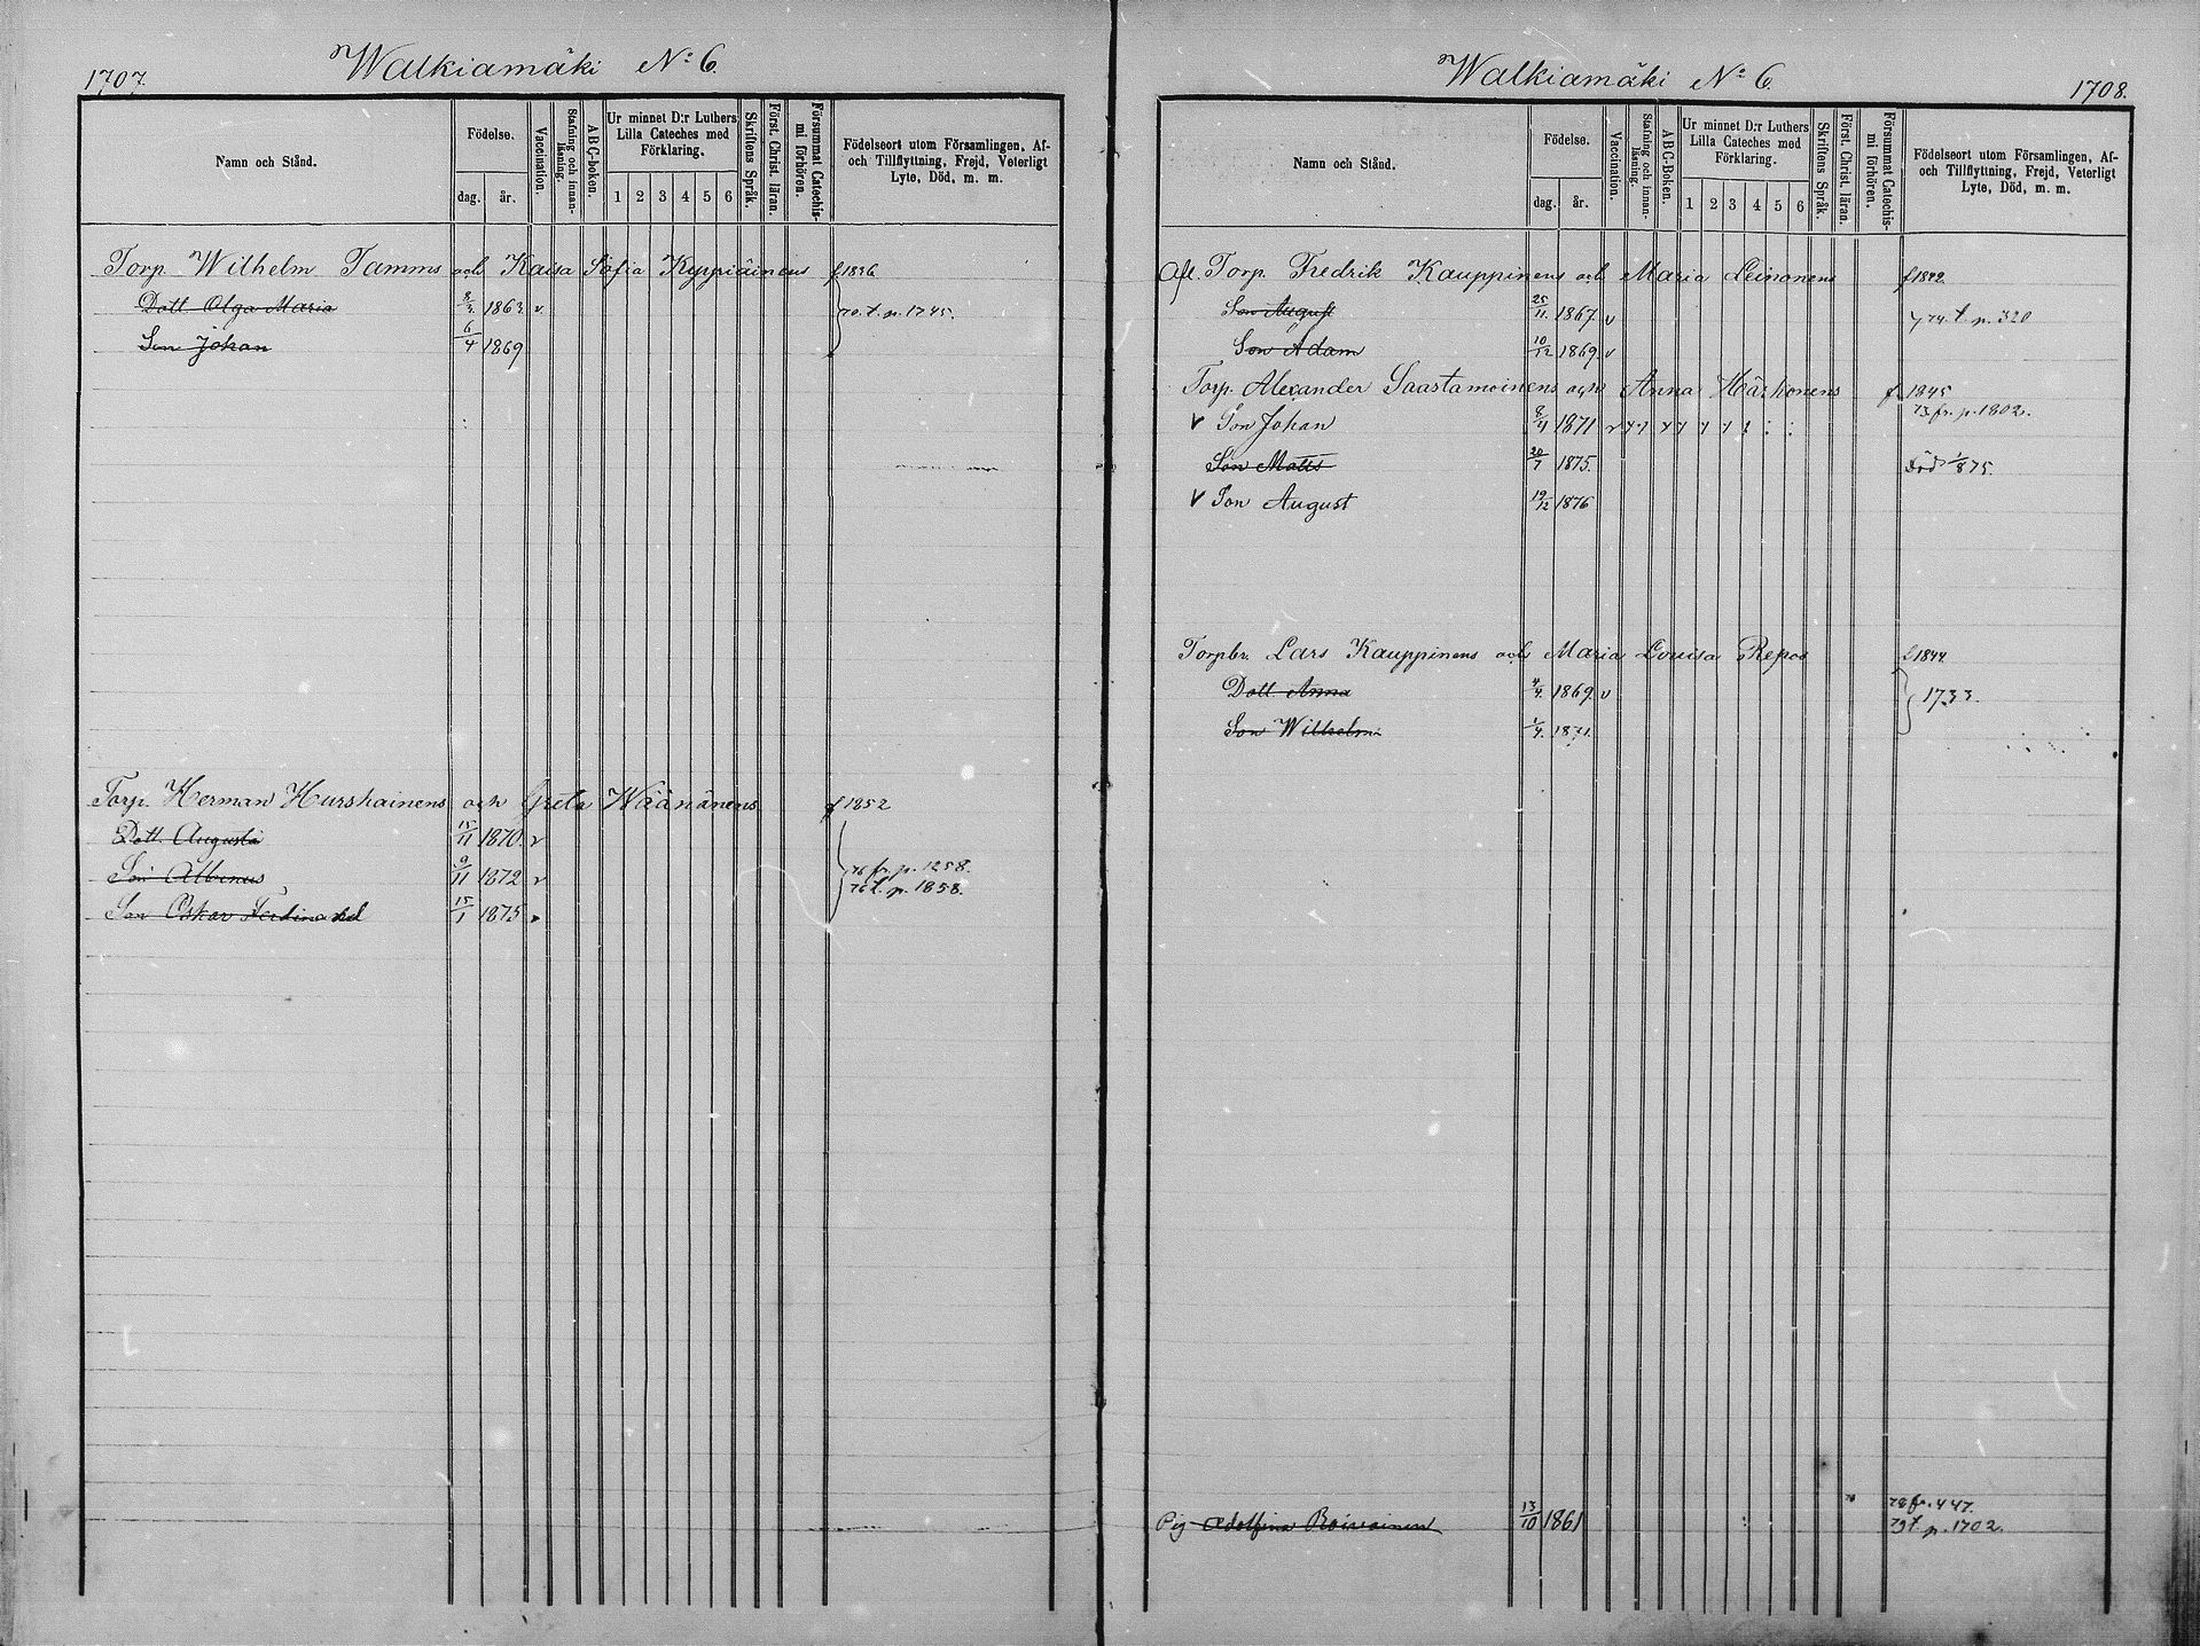 1707.
Walkiamäki No 6.
Namn och Stånd.
Födelse.
dag.
år.
Vaccination.
Stafning och innan-
läsning.
ABC-boken.
Ur minnet D:r Luthers
Lilla Cateches med
Förklaring.
1 2 3 4 5 6
Skriftens Språk.
Först. Christ. läran.
Försummat Catechis-
mi förhören.
Födelseort utom Församlingen, Af-
och Tillflyttning, Frejd, Veterligt
Lyte, Död, m. m.
Torp. Wilhelm Tamms och Kaisa Sofia Kyppiäinens f 1836
Dott. Olga Maria 1863 v. 70. t. p. 1745.
Son Johan 6/4 1869
Torp. Herman Hurskainens och Greta Wäänänens f 1852
Dott. Augusta 15/11 1870 v
Son Albinus 9/11 1872 v 76 fr. p. 1258.
76 t. p. 1858.
Son Oskar Ferdinand 15/1 1875
Walkiamäki No 6.
1708.
Namn och Stånd.
Födelse.
dag.
år.
Vaccination.
Stafning och innan-
läsning.
ABC-Boken.
Ur minnet D:r Luthers
Lilla Cateches med
Förklaring.
1 2 3 4 5 6
Skriftens Språk.
Först. Christ. läran.
Försummat Catechis-
mi förhören.
Födelseort utom Församlingen, Af-
och Tillflyttning, Frejd, Veterligt
Lyte, Död, m. m.
Afl. Torp. Fredrik Kauppinens och Maria Leinonens f 1842.
Son August 25/11. 1867. v 74. t. p. 320
Son Adam 10/12 1869. v
Torp. Alexander Saastamoinens och Anna Härkönens f 1845
73 fr. p. 1802.
v Son Johan 8/4 1871 v
Son Matts 20/7 1875. Död 1/8 75.
v Son August 19/12 1876
Torpbr. Lars Kauppinens och Maria Lovisa Repos f 1844
Dott. Anna 4/4. 1869. v 1733.
Son Wilhelm 1/4. 1871.
78 fr. 447.
Pig. Adolfina Roivainen 13/10 1861 79 t. p. 1702.